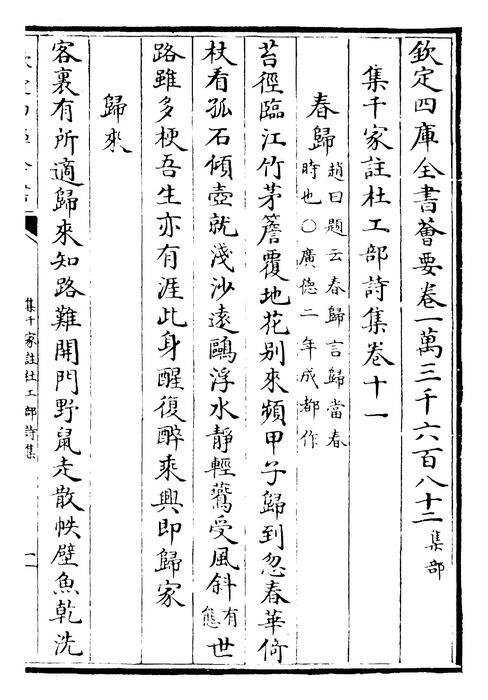 欽定四庫全書薈要卷一萬三千六百八十二 集部
集千家註杜工部詩集卷十一
春歸 趙曰題云春歸言歸當春
時也○廣德二年成都作
苔徑臨江竹茅簷覆地花別來頻甲子歸到忽春華倚
杖看孤石傾壺就淺沙遠鷗浮水靜輕鷰受風斜 有態 世
路雖多梗吾生亦有涯此身醒復醉乘興即歸家
歸來
客裏有所適歸來知路難開門野鼠走散帙壁魚乾洗
集千家註杜工部詩集
一